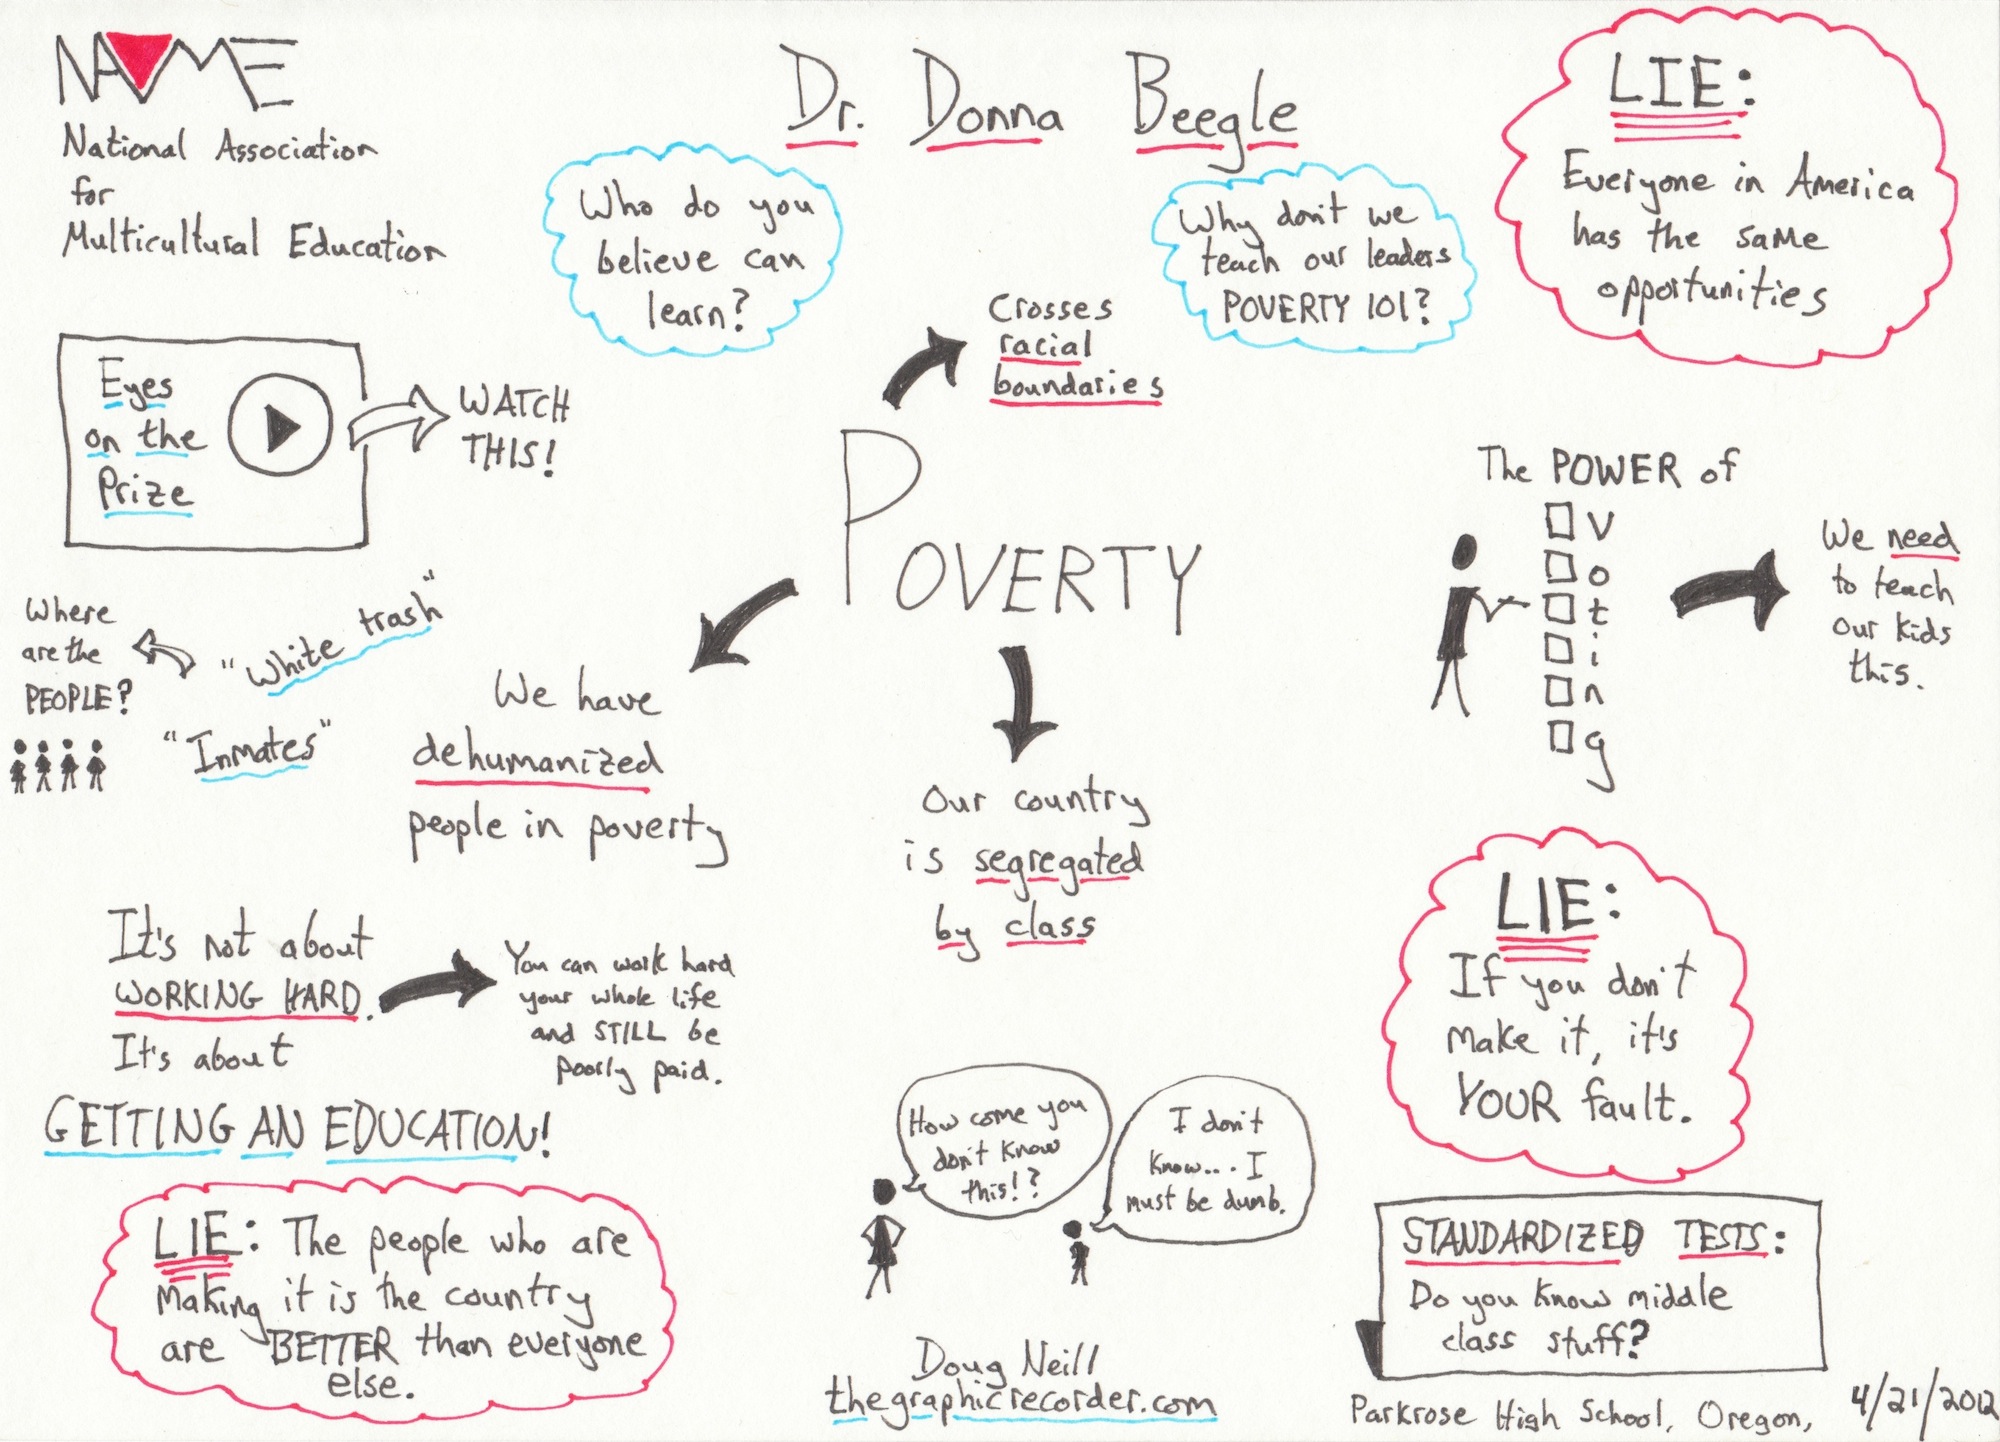 NAME
National Association
for
Multicultural Education
Dr. Donna Beegle
Who do you
believe can
learn?
Why don't we
teach our leaders
POVERTY 101?
LIE:
Everyone in America
has the same
opportunities
Eyes
on the
Prize
WATCH
THIS!
Crosses
racial
boundaries
POVERTY
The POWER of
Voting
We need
to teach
our kids
this.
Where
are the
PEOPLE?
"White trash"
"Inmates"
We have
dehumanized
people in poverty
Our country
is segregated
by class
It's not about
WORKING HARD.
It's about
GETTING AN EDUCATION!
You can work hard
your whole life
and STILL be
poorly paid.
LIE:
If you don't
make it, it's
YOUR fault.
How come you
don't know
this!?
I don't
know... I
must be dumb.
LIE: The people who are
making it is the country
are BETTER than everyone
else.
STANDARDIZED TESTS:
Do you know middle
class stuff?
Doug Neill
thegraphicrecorder.com
Parkrose High School, Oregon, 4/21/2012